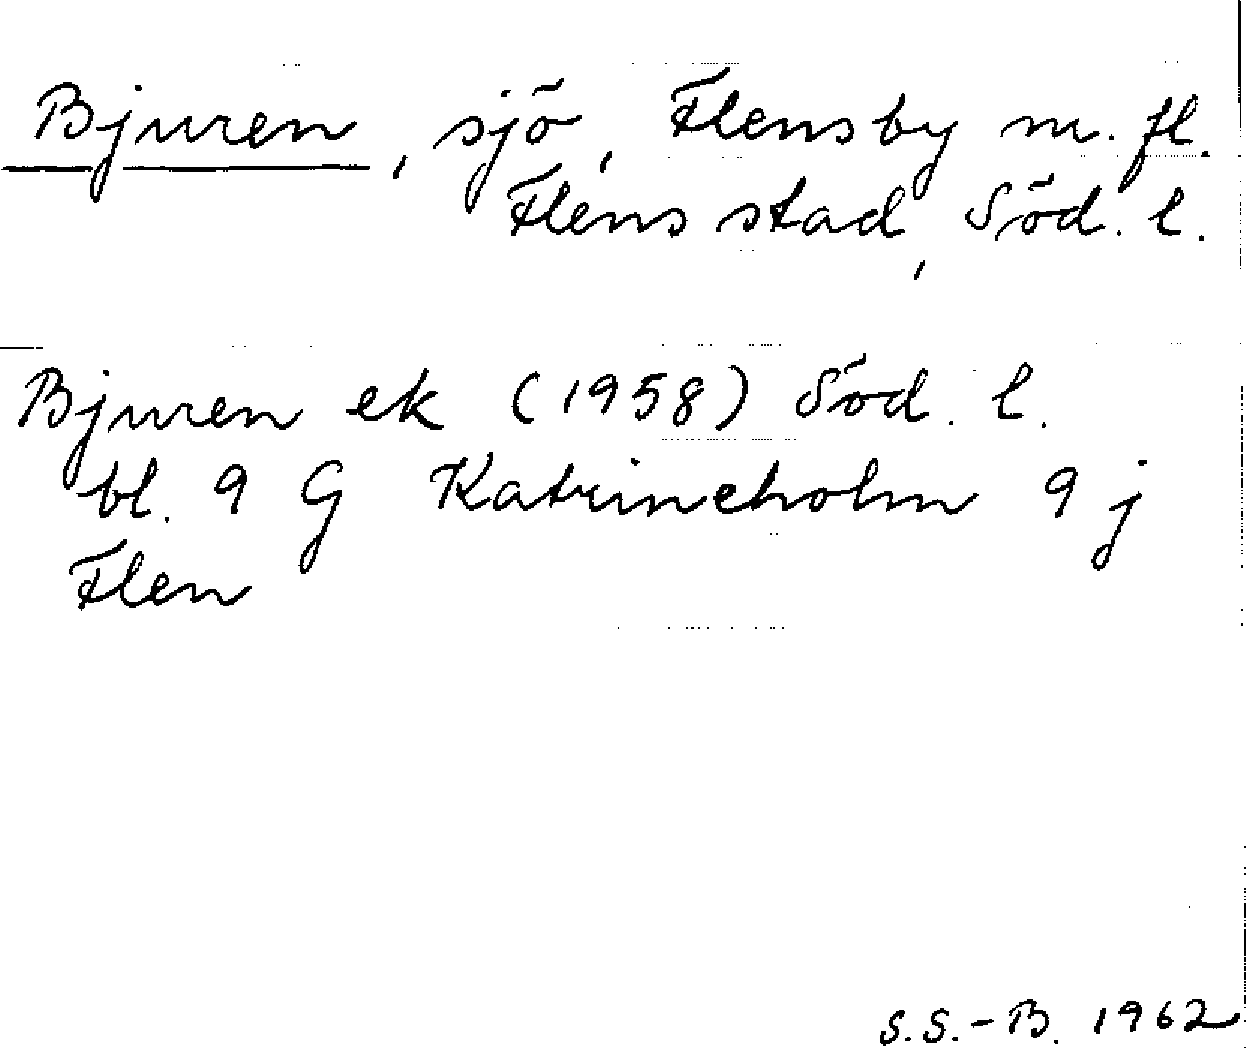 Bjuren, sjö, Flensby m. fl.
Flens stad, Söd. l.
Bjuren ek (1958) Söd. l.
bl. 9 G Katrineholm 9 j
Flen
S.S.-B. 1962